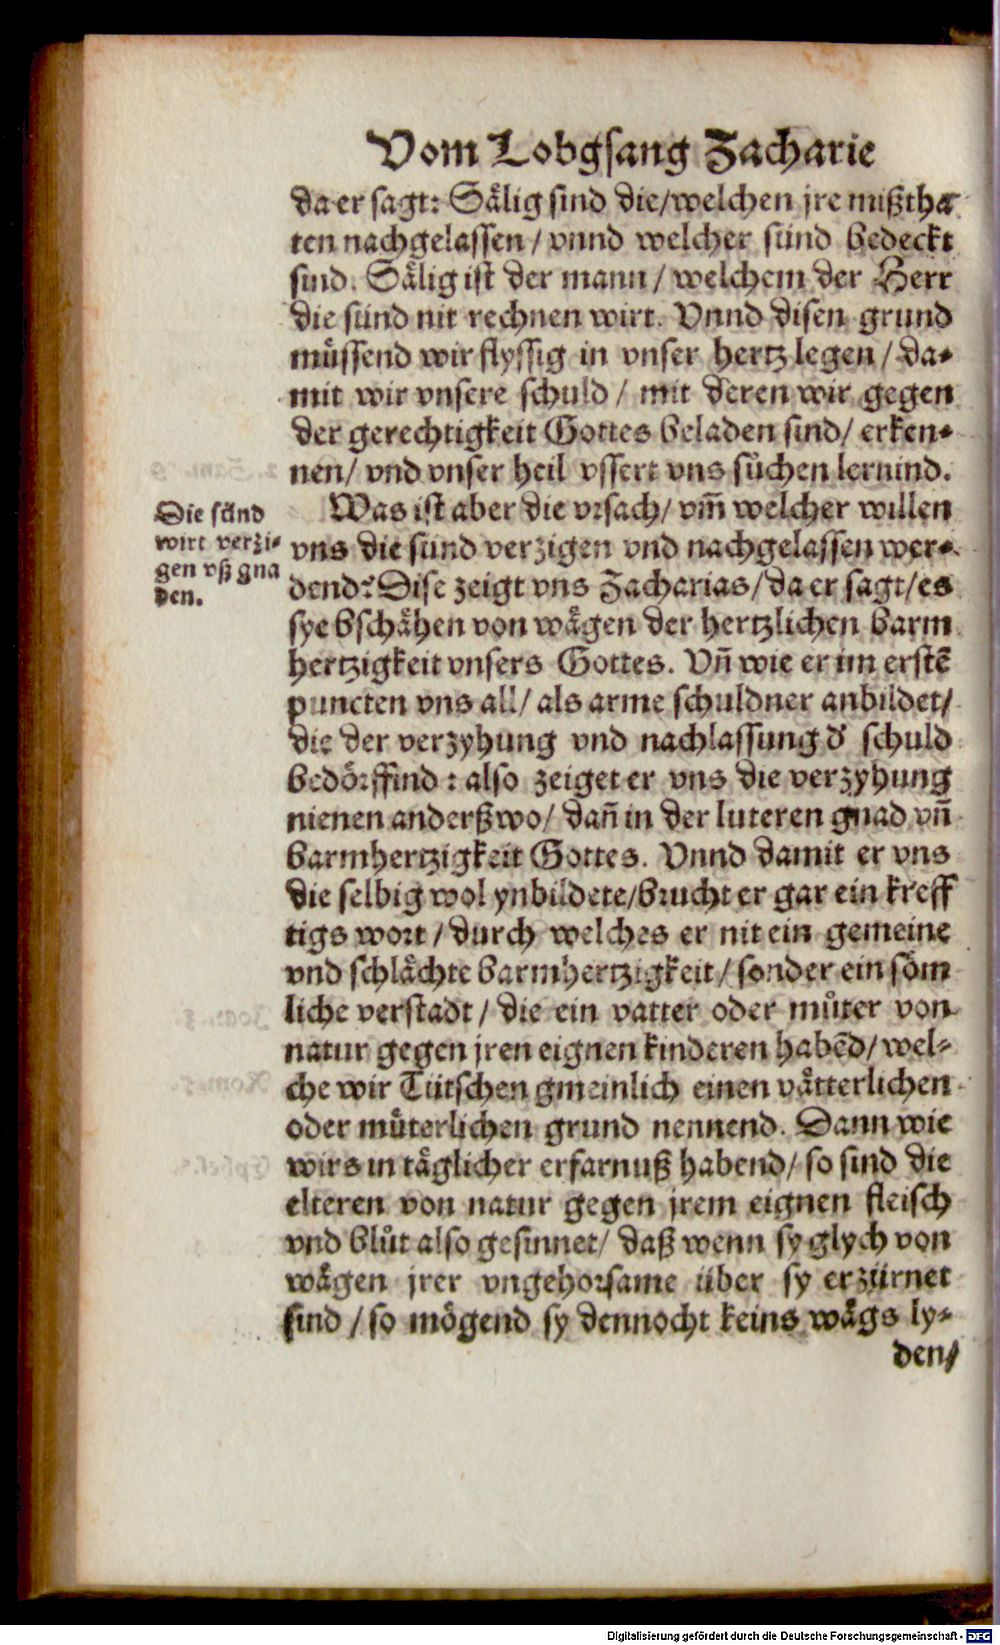 Vom Lobgsang Zacharie
da er sagt: Sälig sind die/welchen jre mißtha
ten nachgelassen / vnnd welcher sünd bedeckt
sind. Sälig ist der mann / welchem der Herr
die sünd nit rechnen wirt. Vnnd disen grund
müssend wir flyssig in vnser hertz legen / da⸗
mit wir vnsere schuld / mit deren wir gegen
der gerechtigkeit Gottes beladen sind/ erken⸗
nen/ vnd vnser heil vssert vns sůchen lernind.
Die sünd
wirt verzi⸗
gen vß gna
den.
Was ist aber die vrsach/ vm̃ welcher willen
vns die sünd verzigen vnd nachgelassen wer⸗
dend? Dise zeigt vns Zacharias/ da er sagt/es
sye bschähen von wägen der hertzlichen barm
hertzigkeit vnsers Gottes. Vñ wie er im erstẽ
puncten vns all/ als arme schuldner anbildet/
die der verzyhung vnd nachlassung d' schuld
bedörffind : also zeiget er vns die verzyhung
nienen anderßwo/ dañ in der luteren gnad vñ
barmhertzigkeit Gottes. Vnnd damit er vns
die selbig wol ynbildete/brucht er gar ein kreff
tigs wort / durch welches er nit ein gemeine
vnd schlächte barmhertzigkeit / sonder ein söm
liche verstadt / die ein vatter oder můter von
natur gegen jren eignen kinderen habẽd/ wel⸗
che wir Tütschen gmeinlich einen vätterlichen
oder můterlichen grund nennend. Dann wie
wirs in täglicher erfarnuß habend/ so sind die
elteren von natur gegen jrem eignen fleisch
vnd blůt also gesinnet/ daß wenn sy glych von
wägen jrer vngehorsame über sy erzürnet
sind / so mögend sy dennocht keins wägs ly⸗
den/
Digitalisierung gefördert durch die Deutsche Forschungsgemeinschaft - DFG